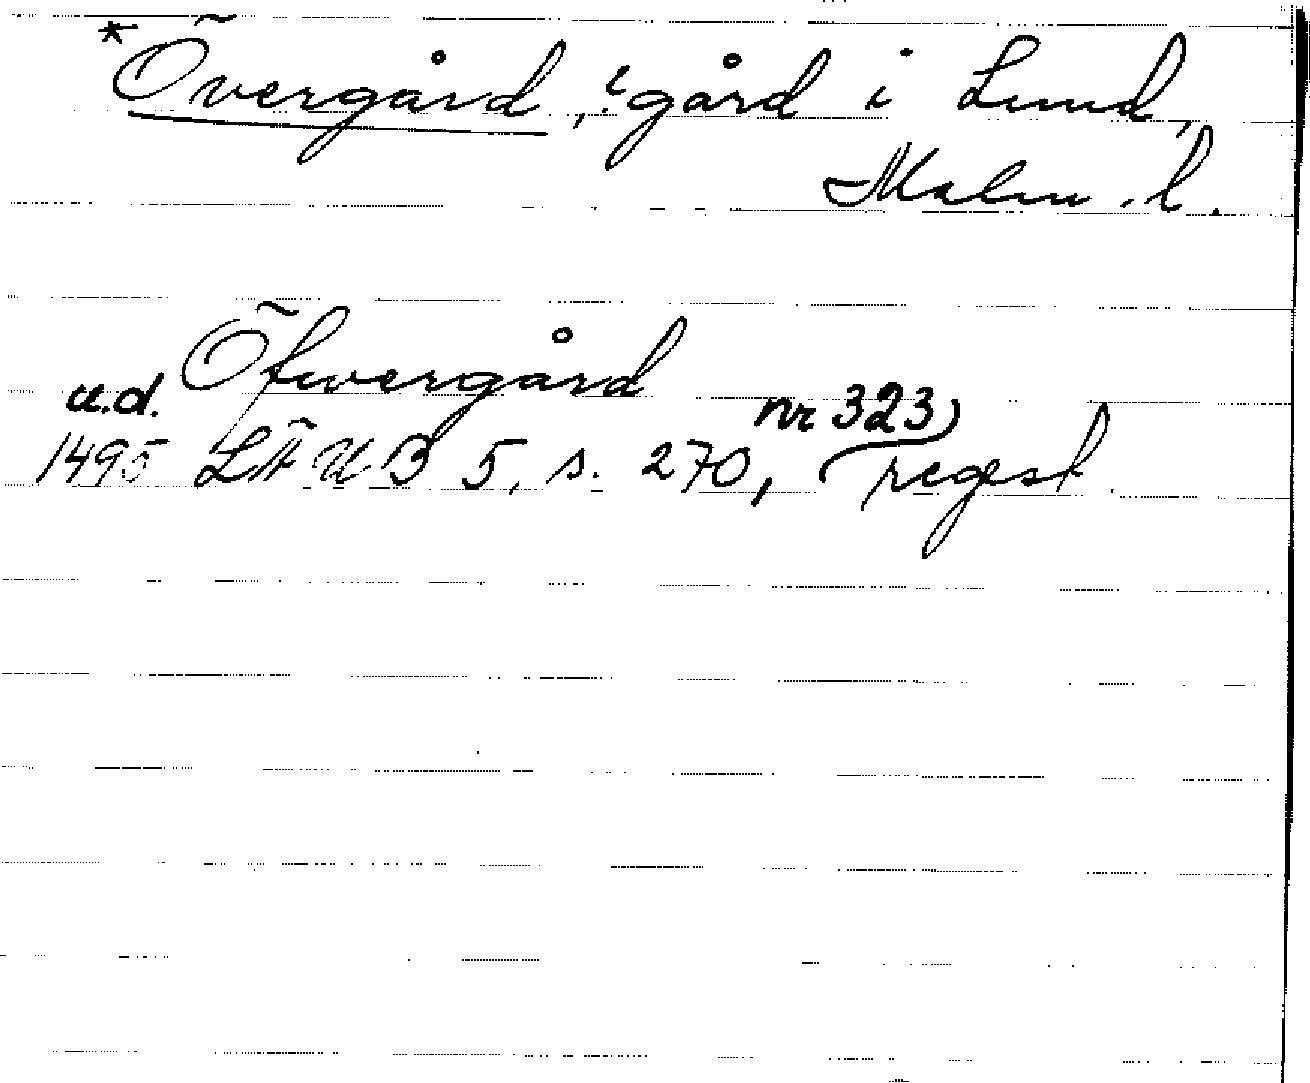 *Övergård, gård i Lund,
Malm. l.
Öfwergård
u.d. nr 323)
1495 LÄUB 5, s. 270, (regest